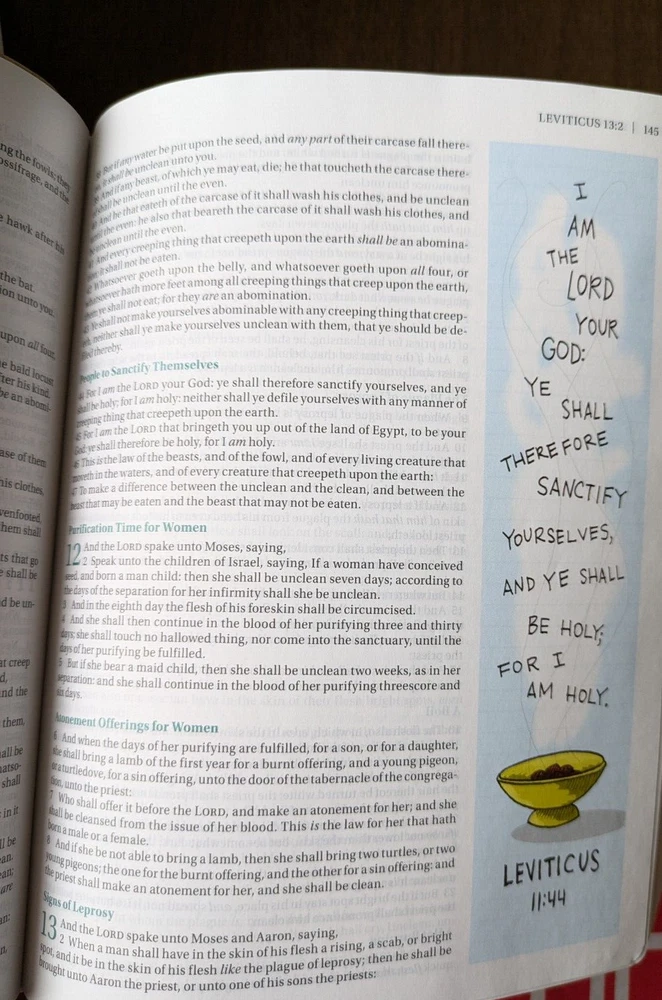 ng the fowls; they
ossifrage, and the
e hawk after his
the bat.
ion unto you.
upon all four,
e bald locust
fter his kind.
be an abomi-
ase of them
his clothes,
venfooted,
hem shall
ts that go
e shall be
d be un-
at creep
d,
nd the
them,
all be
atso-
shall
in it
ll be
an.
an;
are
an:
n.
LEVITICUS 13:2 | 145
But if any water be put upon the seed, and any part of their carcase fall there-
it shall be unclean unto you.
And if any beast, of which ye may eat, die; he that toucheth the carcase there-
shall be unclean until the even.
And he that eateth of the carcase of it shall wash his clothes, and be unclean
until the even: he also that beareth the carcase of it shall wash his clothes, and
be unclean until the even.
And every creeping thing that creepeth upon the earth shall be an abomina-
it shall not be eaten.
Whatsoever goeth upon the belly, and whatsoever goeth upon all four, or
whatsoever hath more feet among all creeping things that creep upon the earth,
them ye shall not eat; for they are an abomination.
43 Ye shall not make yourselves abominable with any creeping thing that creep-
eth, neither shall ye make yourselves unclean with them, that ye should be de-
filed thereby.
People to Sanctify Themselves
44 For I am the LORD your God: ye shall therefore sanctify yourselves, and ye
shall be holy; for I am holy: neither shall ye defile yourselves with any manner of
creeping thing that creepeth upon the earth.
45 For I am the LORD that bringeth you up out of the land of Egypt, to be your
God: ye shall therefore be holy, for I am holy.
46 This is the law of the beasts, and of the fowl, and of every living creature that
moveth in the waters, and of every creature that creepeth upon the earth:
47 To make a difference between the unclean and the clean, and between the
beast that may be eaten and the beast that may not be eaten.
Purification Time for Women
12 And the LORD spake unto Moses, saying,
2 Speak unto the children of Israel, saying, If a woman have conceived
seed, and born a man child: then she shall be unclean seven days; according to
the days of the separation for her infirmity shall she be unclean.
3 And in the eighth day the flesh of his foreskin shall be circumcised.
4 And she shall then continue in the blood of her purifying three and thirty
days; she shall touch no hallowed thing, nor come into the sanctuary, until the
days of her purifying be fulfilled.
5 But if she bear a maid child, then she shall be unclean two weeks, as in her
separation: and she shall continue in the blood of her purifying threescore and
six days.
Atonement Offerings for Women
6 And when the days of her purifying are fulfilled, for a son, or for a daughter,
she shall bring a lamb of the first year for a burnt offering, and a young pigeon,
or a turtledove, for a sin offering, unto the door of the tabernacle of the congrega-
tion, unto the priest:
7 Who shall offer it before the LORD, and make an atonement for her; and she
shall be cleansed from the issue of her blood. This is the law for her that hath
born a male or a female.
8 And if she be not able to bring a lamb, then she shall bring two turtles, or two
young pigeons; the one for the burnt offering, and the other for a sin offering: and
the priest shall make an atonement for her, and she shall be clean.
Signs of Leprosy
13 And the LORD spake unto Moses and Aaron, saying,
2 When a man shall have in the skin of his flesh a rising, a scab, or bright
spot, and it be in the skin of his flesh like the plague of leprosy; then he shall be
brought unto Aaron the priest, or unto one of his sons the priests:
I
AM
THE
LORD
YOUR
GOD:
YE
SHALL
THEREFORE
SANCTIFY
YOURSELVES,
AND YE SHALL
BE HOLY;
FOR I
AM HOLY.
LEVITICUS
11:44